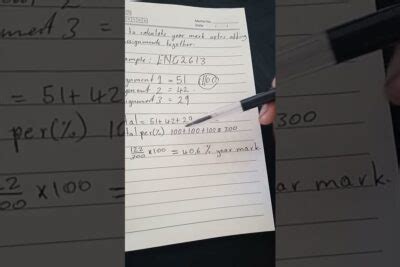 to calculate year mark after adding
assignments together.
ample: ENG2613
gnment 1 = 51 (100)
gnment 2 = 42
gnment 3 = 29
al = 51+42+29
tal per(%) 100+100+100 = 300
122/300 x100 = 40,6 % year mark
nment 3 =
= 51+42
per(%) 10
300
00 x100
ar mark.